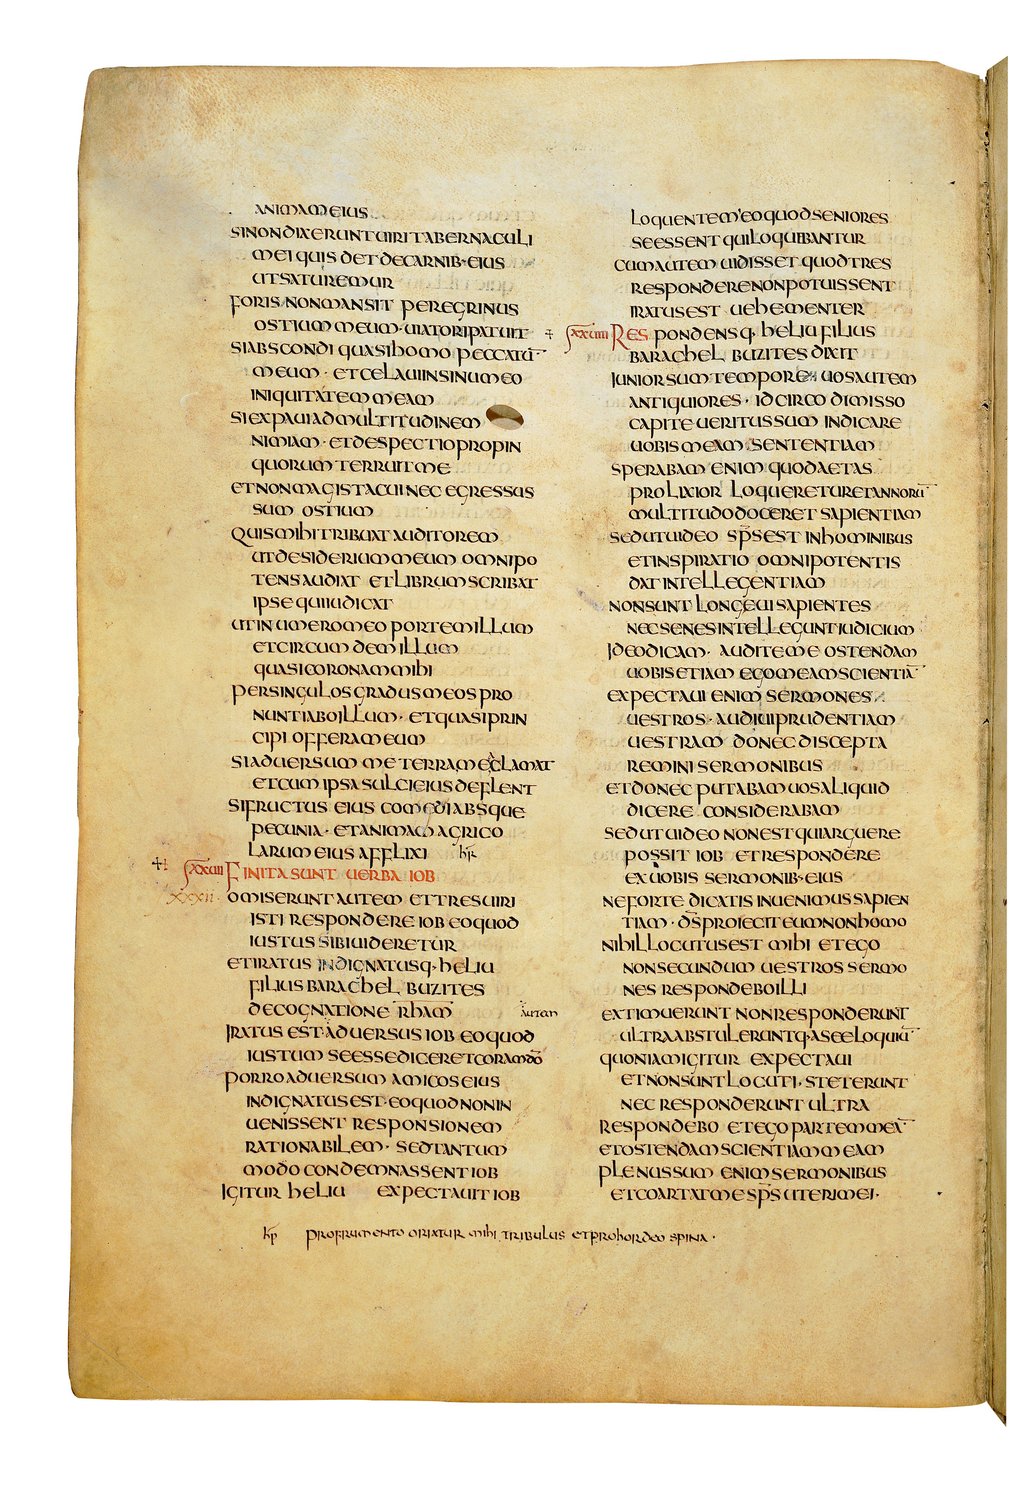 ANIMAM EIUS
SI NON DIXERUNT UIRI TABERNACULI
MEI QUIS DET DE CARNIB· EIUS
UT SATUREMUR
FORIS NON MANSIT PEREGRINUS
OSTIUM MEUM· UIATORI PATUIT
SI ABSCONDI QUASI HOMO PECCATŪ
MEUM· ET CELAUI IN SINU MEO
INIQUITATEM MEAM
SI EXPAUI AD MULTITUDINEM
NIMIAM· ET DESPECTIO PROPIN
QUORUM TERRUIT ME
ET NON MAGIS TACUI NEC EGRESSUS
SUM OSTIUM
QUIS MIHI TRIBUAT AUDITOREM
UT DESIDERIUM MEUM OMNIPO
TENS AUDIAT ET LIBRUM SCRIBAT
IPSE QUI IUDICAT
UT IN UMERO MEO PORTEM ILLUM
ET CIRCUMDEM ILLUM
QUASI CORONAM MIHI
PER SINGULOS GRADUS MEOS PRO
NUNTIABO ILLUM· ET QUASI PRIN
CIPI OFFERAM EUM
SI ADUERSUM ME TERRA MEA CLAMAT
ET CUM IPSA SULCI EIUS DEFLENT
SI FRUCTUS EIUS COMEDI ABSQUE
PECUNIA· ET ANIMAM AGRICO
LARUM EIUS AFFLIXI hp̄
XXVIII FINITA SUNT UERBA IOB
XXXII OMISERUNT AUTEM ET TRES UIRI
ISTI RESPONDERE IOB EO QUOD
IUSTUS SIBI UIDERETUR
ET IRATUS INDIGNATUSQ· HELIU
FILIUS BARACHEL BUZITES
DE COGNATIONE RHAM AUTEM
IRATUS EST· ADUERSUS IOB EO QUOD
IUSTUM SE ESSE DICERET CORAM DŌ
PORRO ADUERSUM AMICOS EIUS
INDIGNATUS EST· EO QUOD NON IN
UENISSENT RESPONSIONEM
RATIONABILEM· SED TANTUM
MODO CONDEMNASSENT IOB
IGITUR HELIU EXPECTAUIT IOB
LOQUENTEM EO QUOD SENIORES
SE ESSENT QUI LOQUEBANTUR
CUM AUTEM UIDISSET QUOD TRES
RESPONDERE NON POTUISSENT
IRATUS EST UEHEMENTER
XXVIIII RESPONDENSQ· HELIU FILIUS
BARACHEL BUZITES DIXIT
IUNIOR SUM TEMPORE UOS AUTEM
ANTIQUIORES· IDCIRCO DIMISSO
CAPITE UERITUS SUM INDICARE
UOBIS MEAM SENTENTIAM
SPERABAM ENIM QUOD AETAS
PROLIXIOR LOQUERETUR ET ANNORŪ
MULTITUDO DOCERET SAPIENTIAM
SED UT UIDEO SP̄S EST IN HOMINIBUS
ET INSPIRATIO OMNIPOTENTIS
DAT INTELLEGENTIAM
NON SUNT LONGEUI SAPIENTES
NEC SENES INTELLEGUNT IUDICIUM
IDEO DICAM· AUDITE ME OSTENDAM
UOBIS ETIAM EGO MEAM SCIENTIĀ
EXPECTAUI ENIM SERMONES
UESTROS· AUDIUI PRUDENTIAM
UESTRAM DONEC DISCEPTA
REMINI SERMONIBUS
ET DONEC PUTABAM UOS ALIQUID
DICERE CONSIDERABAM
SED UT UIDEO NON EST QUI ARGUERE
POSSIT IOB ET RESPONDERE
EX UOBIS SERMONIB· EIUS
NE FORTE DICATIS INUENIMUS SAPIEN
TIAM· DS̄ PROIECIT EUM NON HOMO
NIHIL LOCUTUS EST MIHI ET EGO
NON SECUNDUM UESTROS SERMO
NES RESPONDEBO ILLI
EXTIMUERUNT NON RESPONDERUNT
ULTRA ABSTULERUNTQ· A SE ELOQUIŪ
QUONIAM IGITUR EXPECTAUI
ET NON SUNT LOCUTI· STETERUNT
NEC RESPONDERUNT ULTRA
RESPONDEBO ET EGO PARTEM MEĀ
ET OSTENDAM SCIENTIAM MEAM
PLENUS SUM ENIM SERMONIBUS
ET COARTAT ME SP̄S UTERI MEI·
hp̄ PRO FRUMENTO ORIATUR MIHI TRIBULUS ET PRO HORDEO SPINA·